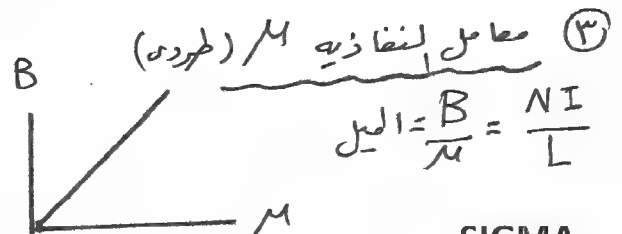 ③ معامل النفاذيه μ (طردى)
B
الميل = B/μ = NI/L
μ
SIGMA